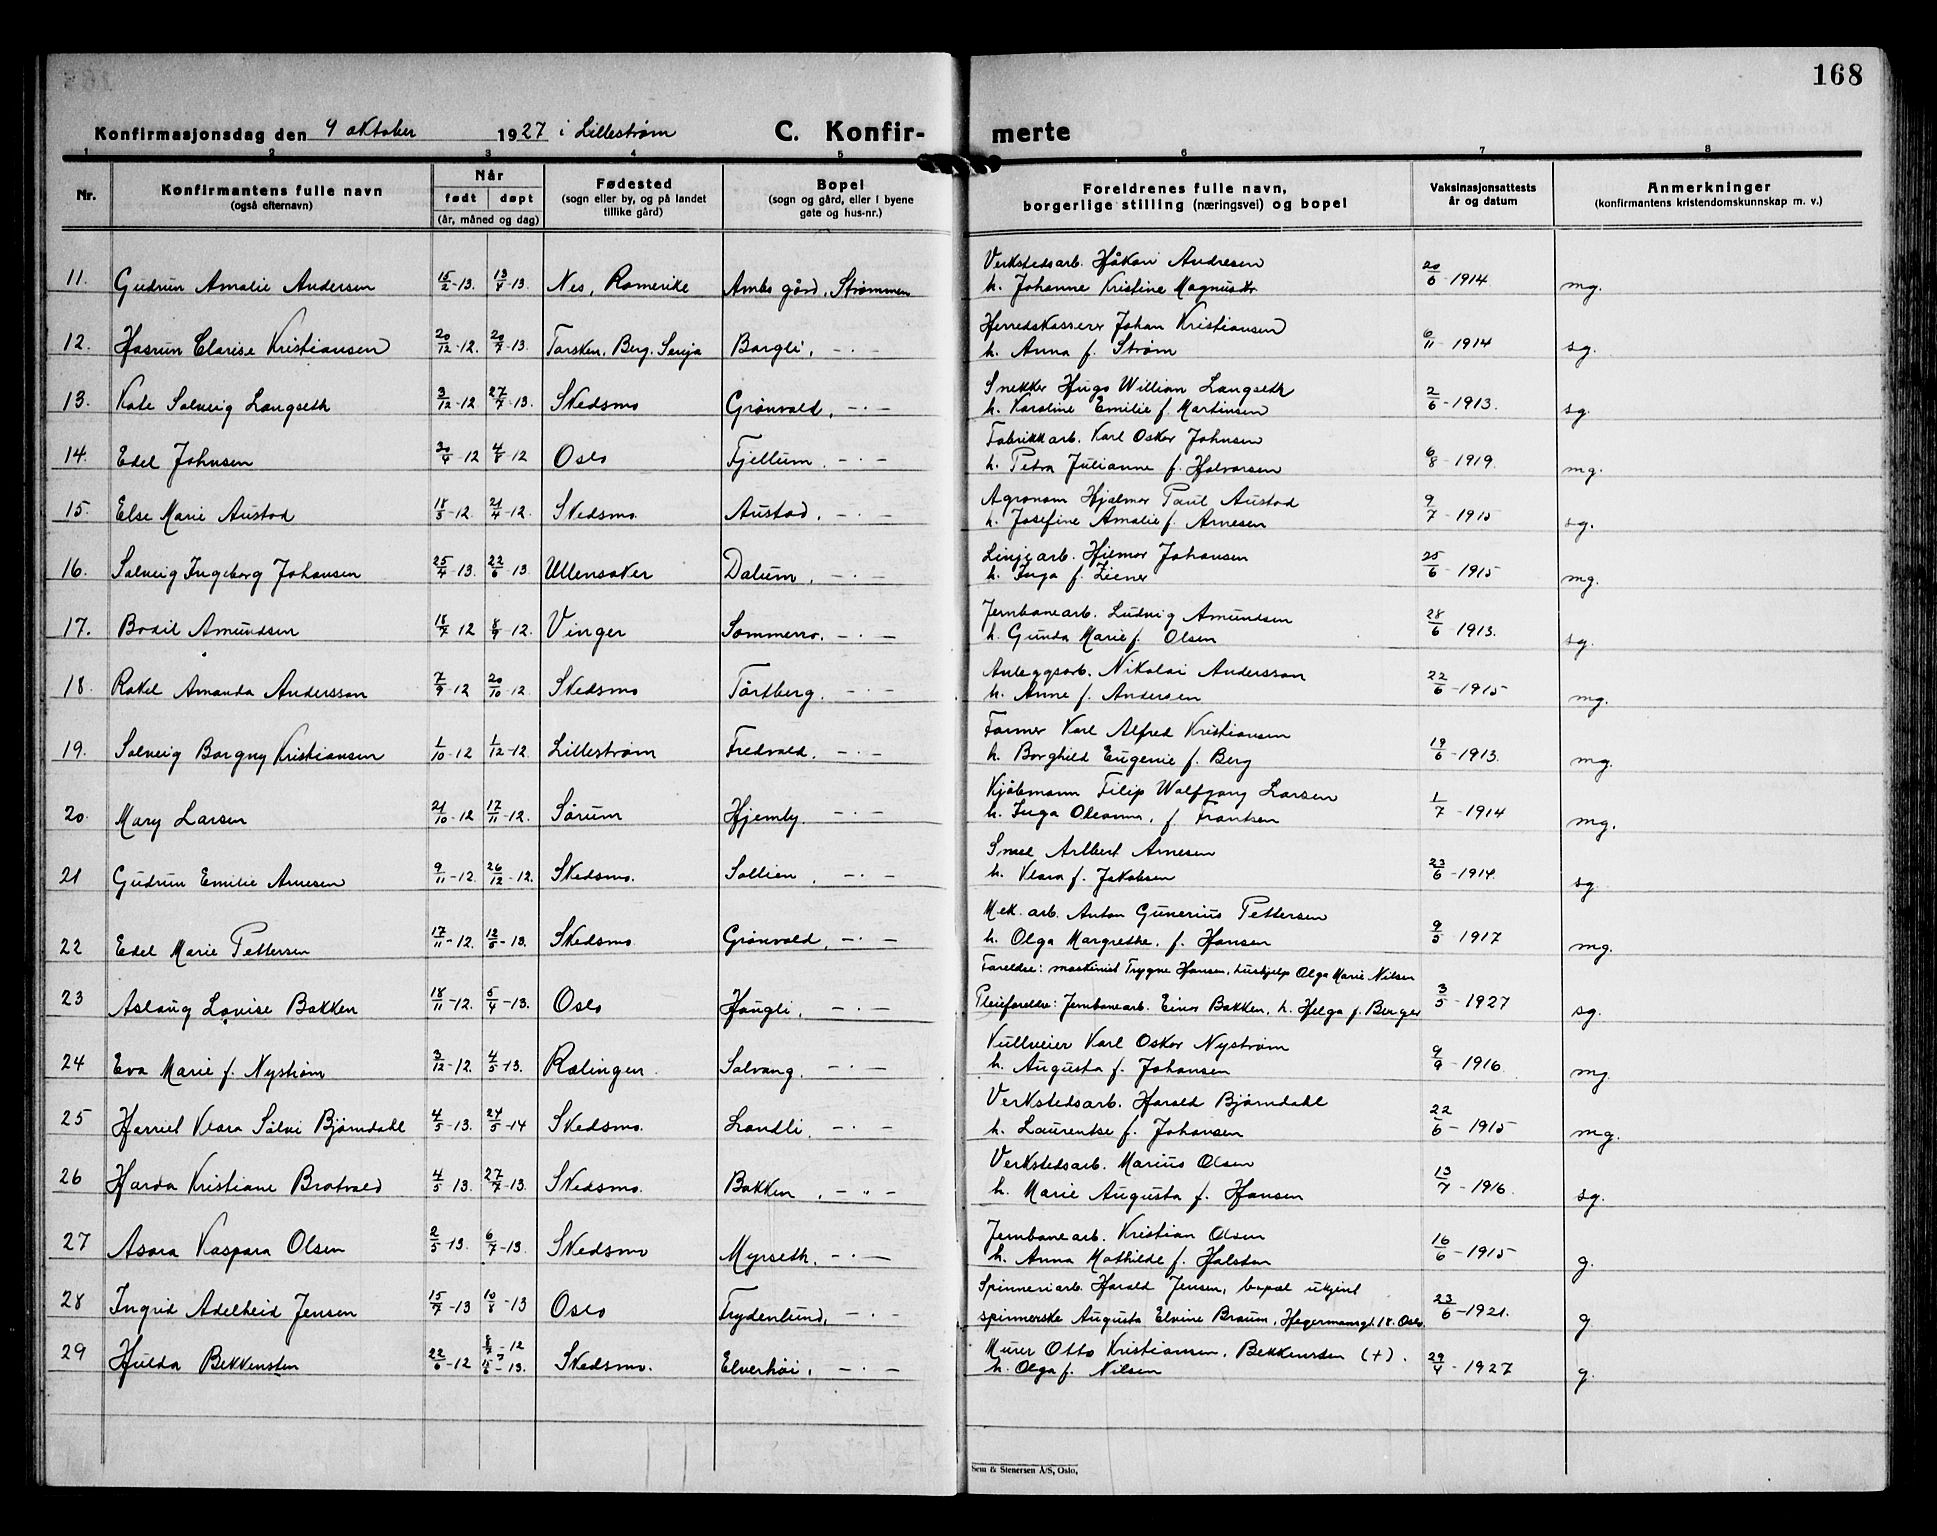 168
Konfirmasjonsdag den 9 oktober 1927 i Lillestrøm C. Konfirmerte
1 2 3 4 5 6 7 8
Nr. Konfirmantens fulle navn (også efternavn) Når født døpt (år, måned og dag) Fødested (sogn eller by, og på landet tillike gård) Bopel (sogn og gård, eller i byene gate og hus-nr.) Foreldrenes fulle navn, borgerlige stilling (næringsvei) og bopel Vaksinasjonsattests år og datum Anmerkninger (konfirmantens kristendomskunnskap m. v.)
Verkstedsarb. Håkon Andresen
11. Gudrun Amalie Andersen 15/2-13. 13/4-13. Nes, Romerike Ambes gård, Strømmen h. Johanne Kristine Magnusdr 20/6-1914 mg.
Herredskasserer Johan Kristiansen
12. Hasrun Clarise Kristiansen 20/12-12. 20/7-13. Torsken, Berg. Senja Borgli, -·- h. Anna f. Strøm 6/11-1914 sg.
Snekker Hugo William Langseth
13. Kate Solveig Langseth 3/12-12 27/7-13. Skedsmo Grønvold, -·- h. Karoline Emilie f. Martinsen 2/6-1913. sg.
Fabrikkarb. Karl Oskar Johnsen
14. Edel Johnsen 20/4-12 4/8-12 Oslo Fjellum. -·- h. Petra Julianne f. Halvorsen 6/8-1919. mg.
Agronom Hjalmar Paul Austad
15. Else Marie Austad 18/3-12. 21/4-12. Skedsmo. Austad. -·- h. Josefine Amalie f. Arnesen 9/7-1915 sg.
Linjearb. Hilmar Johansen
16. Solveig Ingeborg Johansen 25/4-13. 22/6-13. Ullensaker Dalum, -·- h. Inga f. Ziener 25/6-1915 mg.
Jernbanearb. Ludvig Amundsen
17. Bodil Amundsen 18/7-12 8/9-12. Vinger Sommerro. -·- h. Gunda Marie f. Olsen 28/6-1913. sg.
Anleggsarb. Nikolai Andersson
18. Rakel Amanda Andersson 7/9-12 20/10-12. Skedsmo Tårtberg. -·- h. Anne f. Andersen 22/6-1915 mg.
Former Karl Alfred Kristiansen
19. Solveig Borgny Kristiansen 1/10-12 1/12-12. Lillestrøm Fredvold. -·- h. Borghild Eugenie f. Berg 19/6-1913. mg.
Kjøbmann Filip Wolfgang Larsen
20. Mary Larsen 21/10-12 17/11-12. Sørum Hjemly -·- h. Inga Oleanna, f. Frantsen 1/7-1914 mg.
Smed Artbert Arnesen
21 Gudrun Emilie Arnesen 9/11-12. 26/12-12. Skedsmo. Sollien, -·- h. Klara f. Jakobsen 23/6-1914. sg.
Mek. arb. Anton Gunerius Pettersen
22 Edel Marie Pettersen 17/11-12. 12/5-13. Skedsmo. Grønvold, -·- h. Olga Margrethe, f. Hansen 9/5-1917 mg.
Foreldre: maskinist Trygve Hansen, hushjelp Olga Marie Nilsen
23 Aslaug Lovise Bakken 18/11-12. 5/4-13. Oslo Haugli, -·- Pleieforeldre: Jernbanearb. Einar Bakken, h. Helga f. Berger 3/5-1927 sg.
Kullveier Karl Oskar Nystrøm
24 Eva Marie f. Nystrøm 3/12-12. 4/5-13. Rælingen. Solvang. -·- h. Augusta f. Johansen 9/9-1916. mg.
Verkstedsarb. Harald Bjørndahl
25 Harriet Klara Sølvi Bjørndahl 4/5-13. 24/5-14 Skedsmo. Landli. -·- h. Laurentse f. Johansen 22/6-1915 mg.
Verkstedsarb. Marius Olsen
26 Harda Kristiane Bratvold 4/5-13. 27/7-13. Skedsmo. Bakken, -"- h. Marie Augusta f. Hansen 13/7-1916. sg.
Jernbanearb. Kristian Olsen
27 Asora Kaspara Olsen 2/5-13. 6/7-13. Skedsmo Myrseth. -·- h. Anna Mathilde f. Halsten 16/6-1915 g.
Spinneriarb. Harald Jensen, bopæl ukjent
28 Ingrid Adelheid Jensen 15/7-13 10/8-13 Oslo Frydenlund, -·- spinnerske Augusta Elvine Braum, Hegermannsgt. 18. Oslo 23/6-1921. g.
Murer Otto Kristiansen, Bekkensten (+).
29 Hulda Bekkensten 22/6-12 Skedsmo. Elverhøi, -·- h. Olga f. Nilsen 29/4-1927 g.
Sem & Stenersen A/S, Oslo,